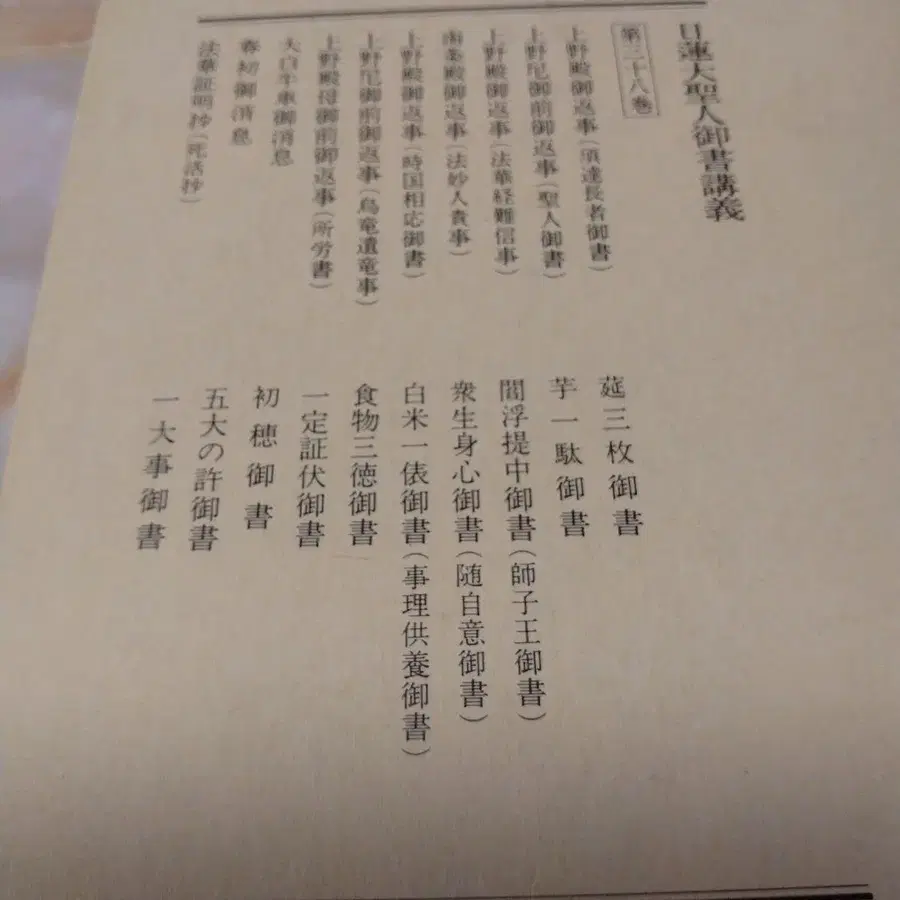 日蓮大聖人御書講義
第三十八巻
上野殿御返事(須達長者御書)
上野尼御前御返事(聖人御書)
上野殿御返事(法華経難信事)
南条殿御返事(法妙人貴事)
上野殿御返事(時国相応御書)
上野尼御前御返事(烏竜遺竜事)
上野殿母御前御返事(所労書)
大白牛車御消息
春初御消息
法華証明抄(死活抄)
莚三枚御書
芋一駄御書
閻浮提中御書(師子王御書)
衆生身心御書(随自意御書)
白米一俵御書(事理供養御書)
食物三徳御書
一定証伏御書
初穂御書
五大の許御書
一大事御書